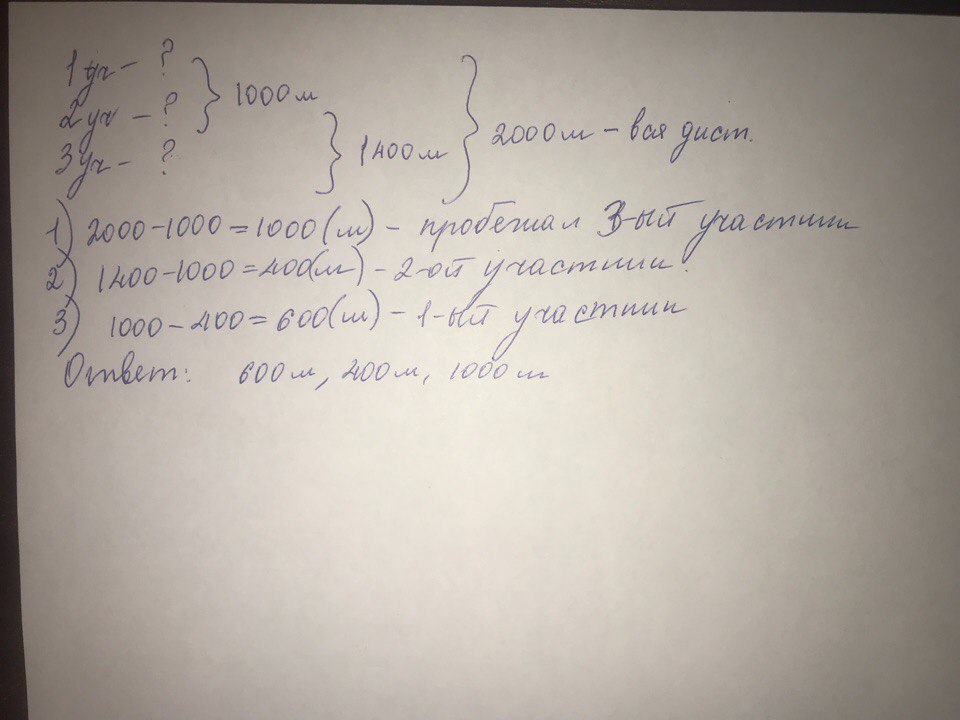 1 уч - ?
2 уч - ? } 1000 м
3 уч - ? } 1400 м } 2000 м - вся дист.
1) 2000 - 1000 = 1000 (м) - пробежал 3-ый участник
2) 1400 - 1000 = 400 (м) - 2-ой участник.
3) 1000 - 400 = 600 (м) - 1-ый участник
Ответ: 600 м, 400 м, 1000 м